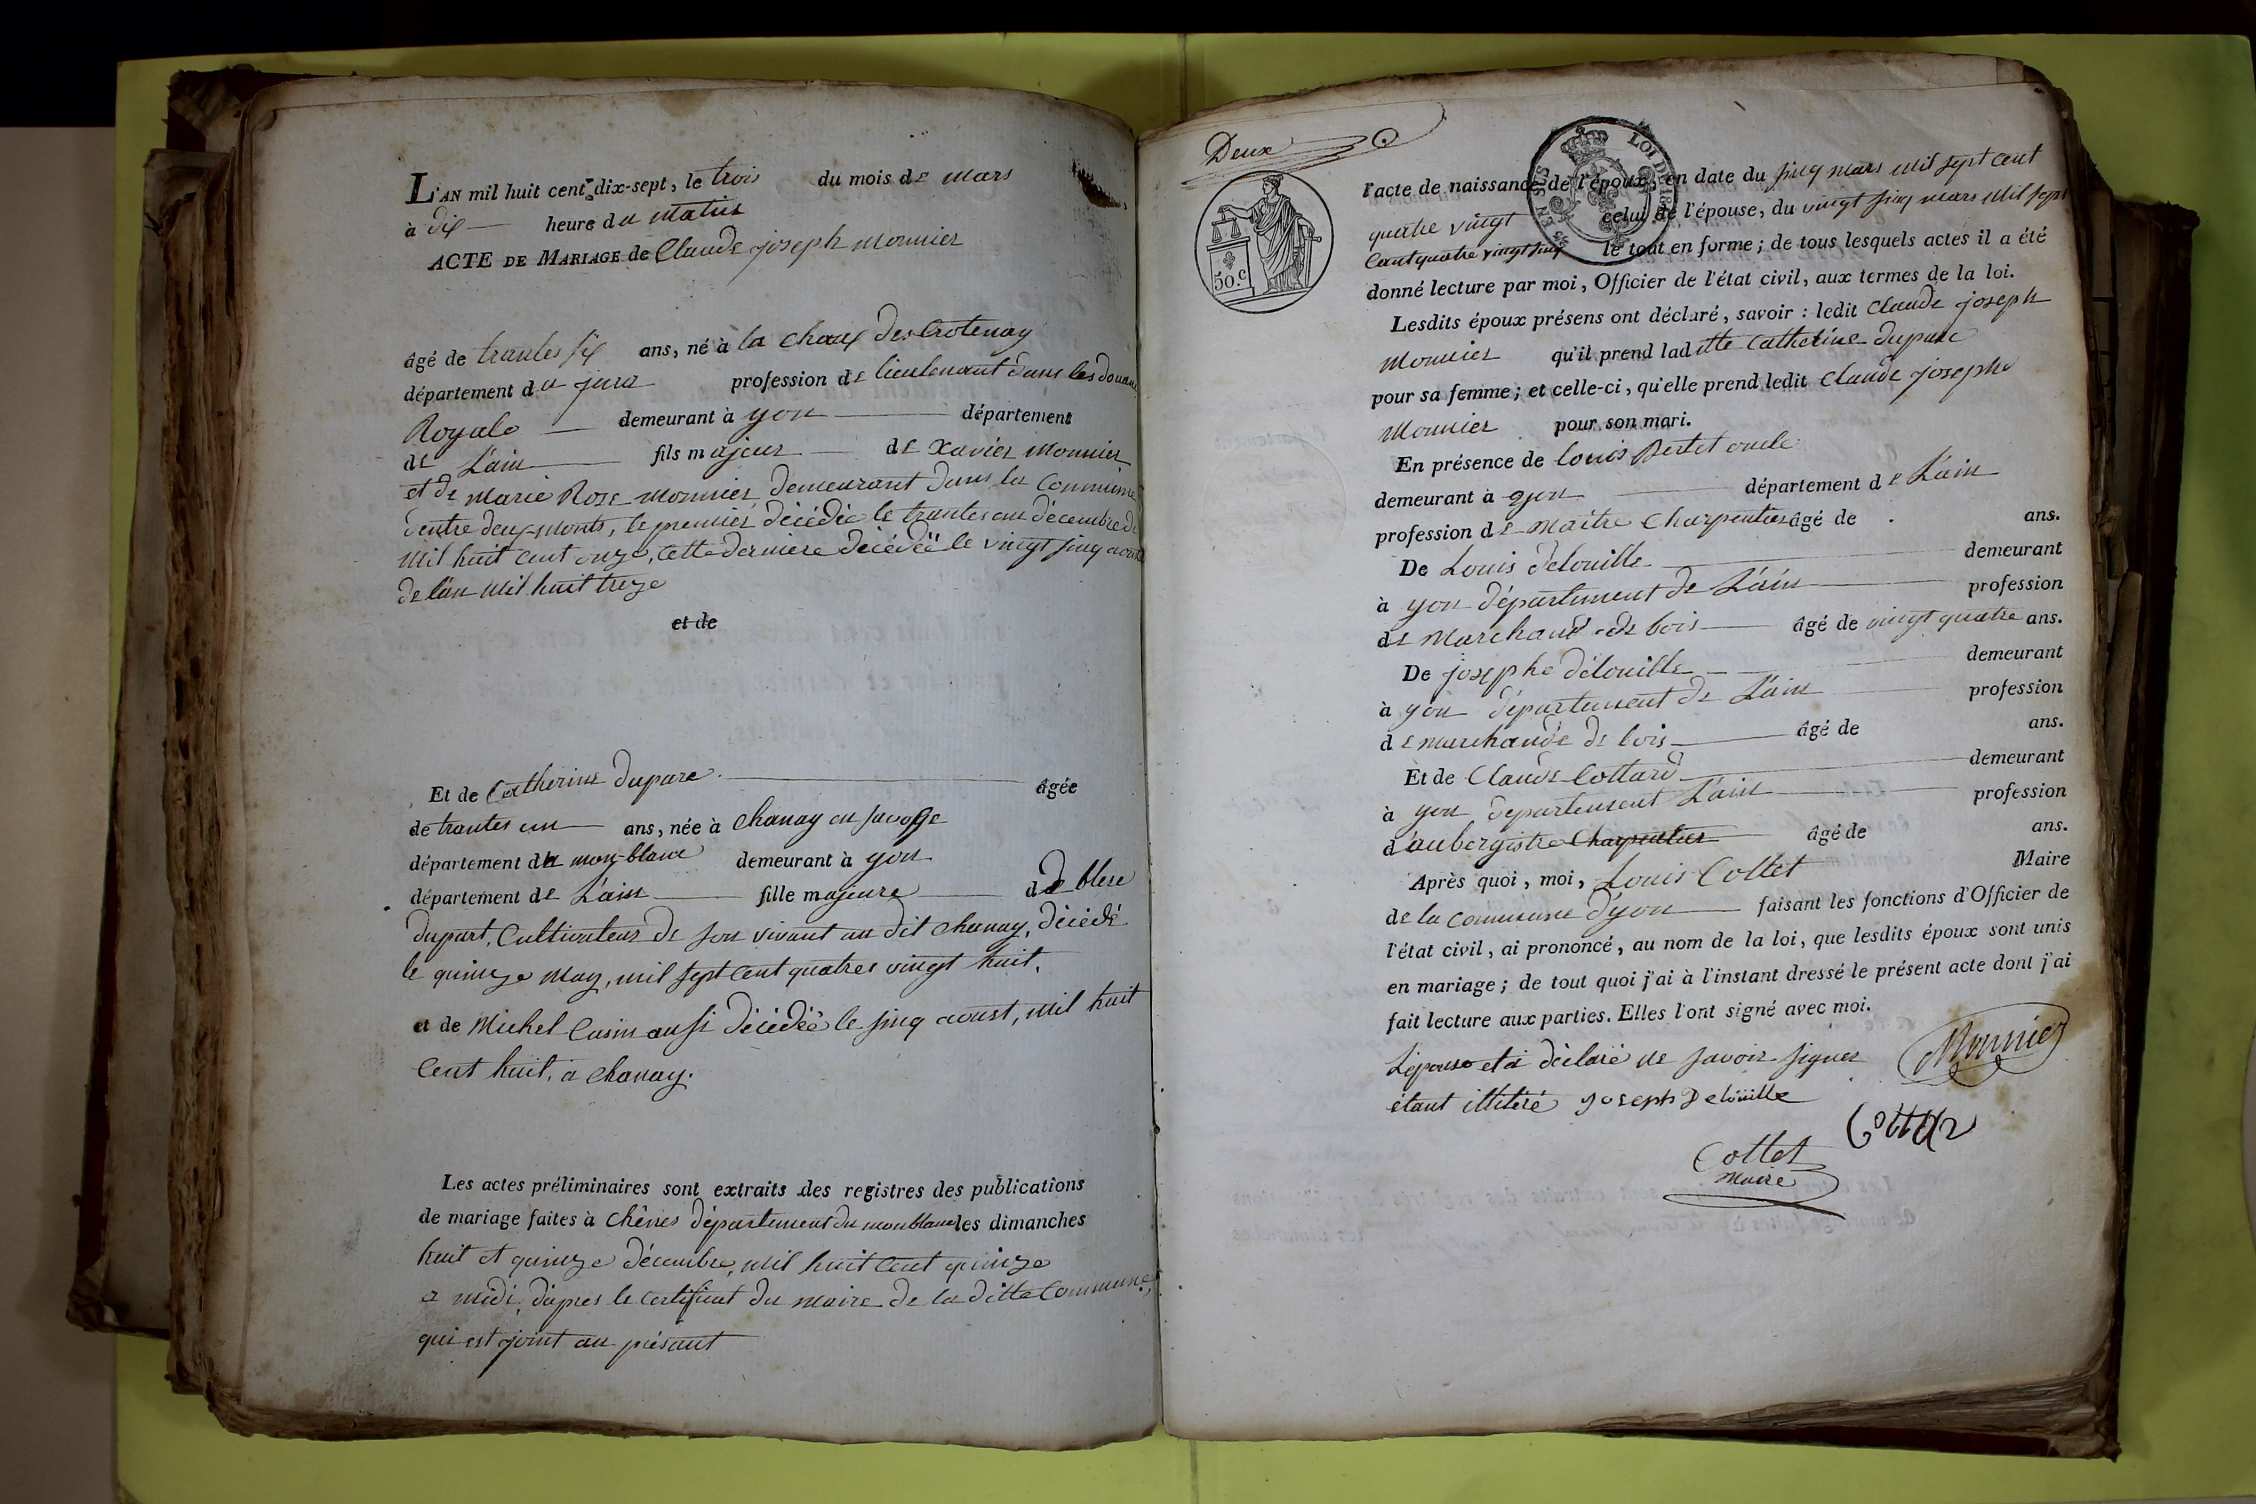 L'AN mil huit cent dix-sept, le trois du mois de mars
à dix heure du matin
ACTE DE MARIAGE de Claude joseph monnier
âgé de trantes six ans, né à la chaux des Crotenay
département du jura profession de lieutenant dans les douane
Royale demeurant à yon département
de L'ain fils majeur de Xavier Monnier
et de marie Rose monnier demeurant dans la Commune
d'entre deux-monts, le premier décédée le trantes un décembre de
mil huit cent onze, cette derniere décédéë le vingt sinq aoust
de l'an mil huit treze
et de
Et de Catherine dupare âgée
de trantes un ans, née à chanay en savoye
département du mon-blanc demeurant à yon
département de L'ain fille majeure de blese
dupart, Cultivateur de son vivant au dit chanay, décédé
le quinze may, mil sept cent quatres vingt huit,
et de Michel Casin aussi décédéë le sinq aoust, mil huit
Cent huit, a chanay.
Les actes préliminaires sont extraits des registres des publications
de mariage faites à chênes département du monblanc les dimanches
huit et quinze décembre, mil huit cent quinze
a midi, d'apres le certificat du maire de la ditte Commune,
qui est joint au présant
Deux
50.c
LOI DE
EN SUS
l'acte de naissance de l'époux, en date du sinq mars mil sept cent
quatre vingt celui de l'épouse, du vingt sinq mars mil sept
Cent quatre vingt sinq le tout en forme; de tous lesquels actes il a été
donné lecture par moi, Officier de l'état civil, aux termes de la loi.
Lesdits époux présens ont déclaré, savoir : ledit Claude joseph
Monnier qu'il prend ladette Catherine dupare
pour sa femme; et celle-ci, qu'elle prend ledit Claude josephe
Monnier pour son mari.
En présence de louis Bertet oncle
demeurant à yon département de L'ain
profession de maitre Charpentier âgé de ans.
De Louis delouille demeurant
à yon département de L'ain profession
de Marchand de bois âgé de vingt quatre ans.
De josephe délouille demeurant
à yon département de L'ain profession
de marchande de bois âgé de ans.
Et de Claude Cottard demeurant
à yon departement L'ain profession
d'aubergistre Charpentier âgé de ans.
Après quoi, moi, Louis Collet Maire
de la commune d'yon faisant les fonctions d'Officier de
l'état civil, ai prononcé, au nom de la loi, que lesdits époux sont unis
en mariage; de tout quoi j'ai à l'instant dressé le présent acte dont j'ai
fait lecture aux parties. Elles l'ont signé avec moi.
L'épouse et a déclaré ne savoir signer Monnier
étant illitéré joseph Delouille
Collet
Maire